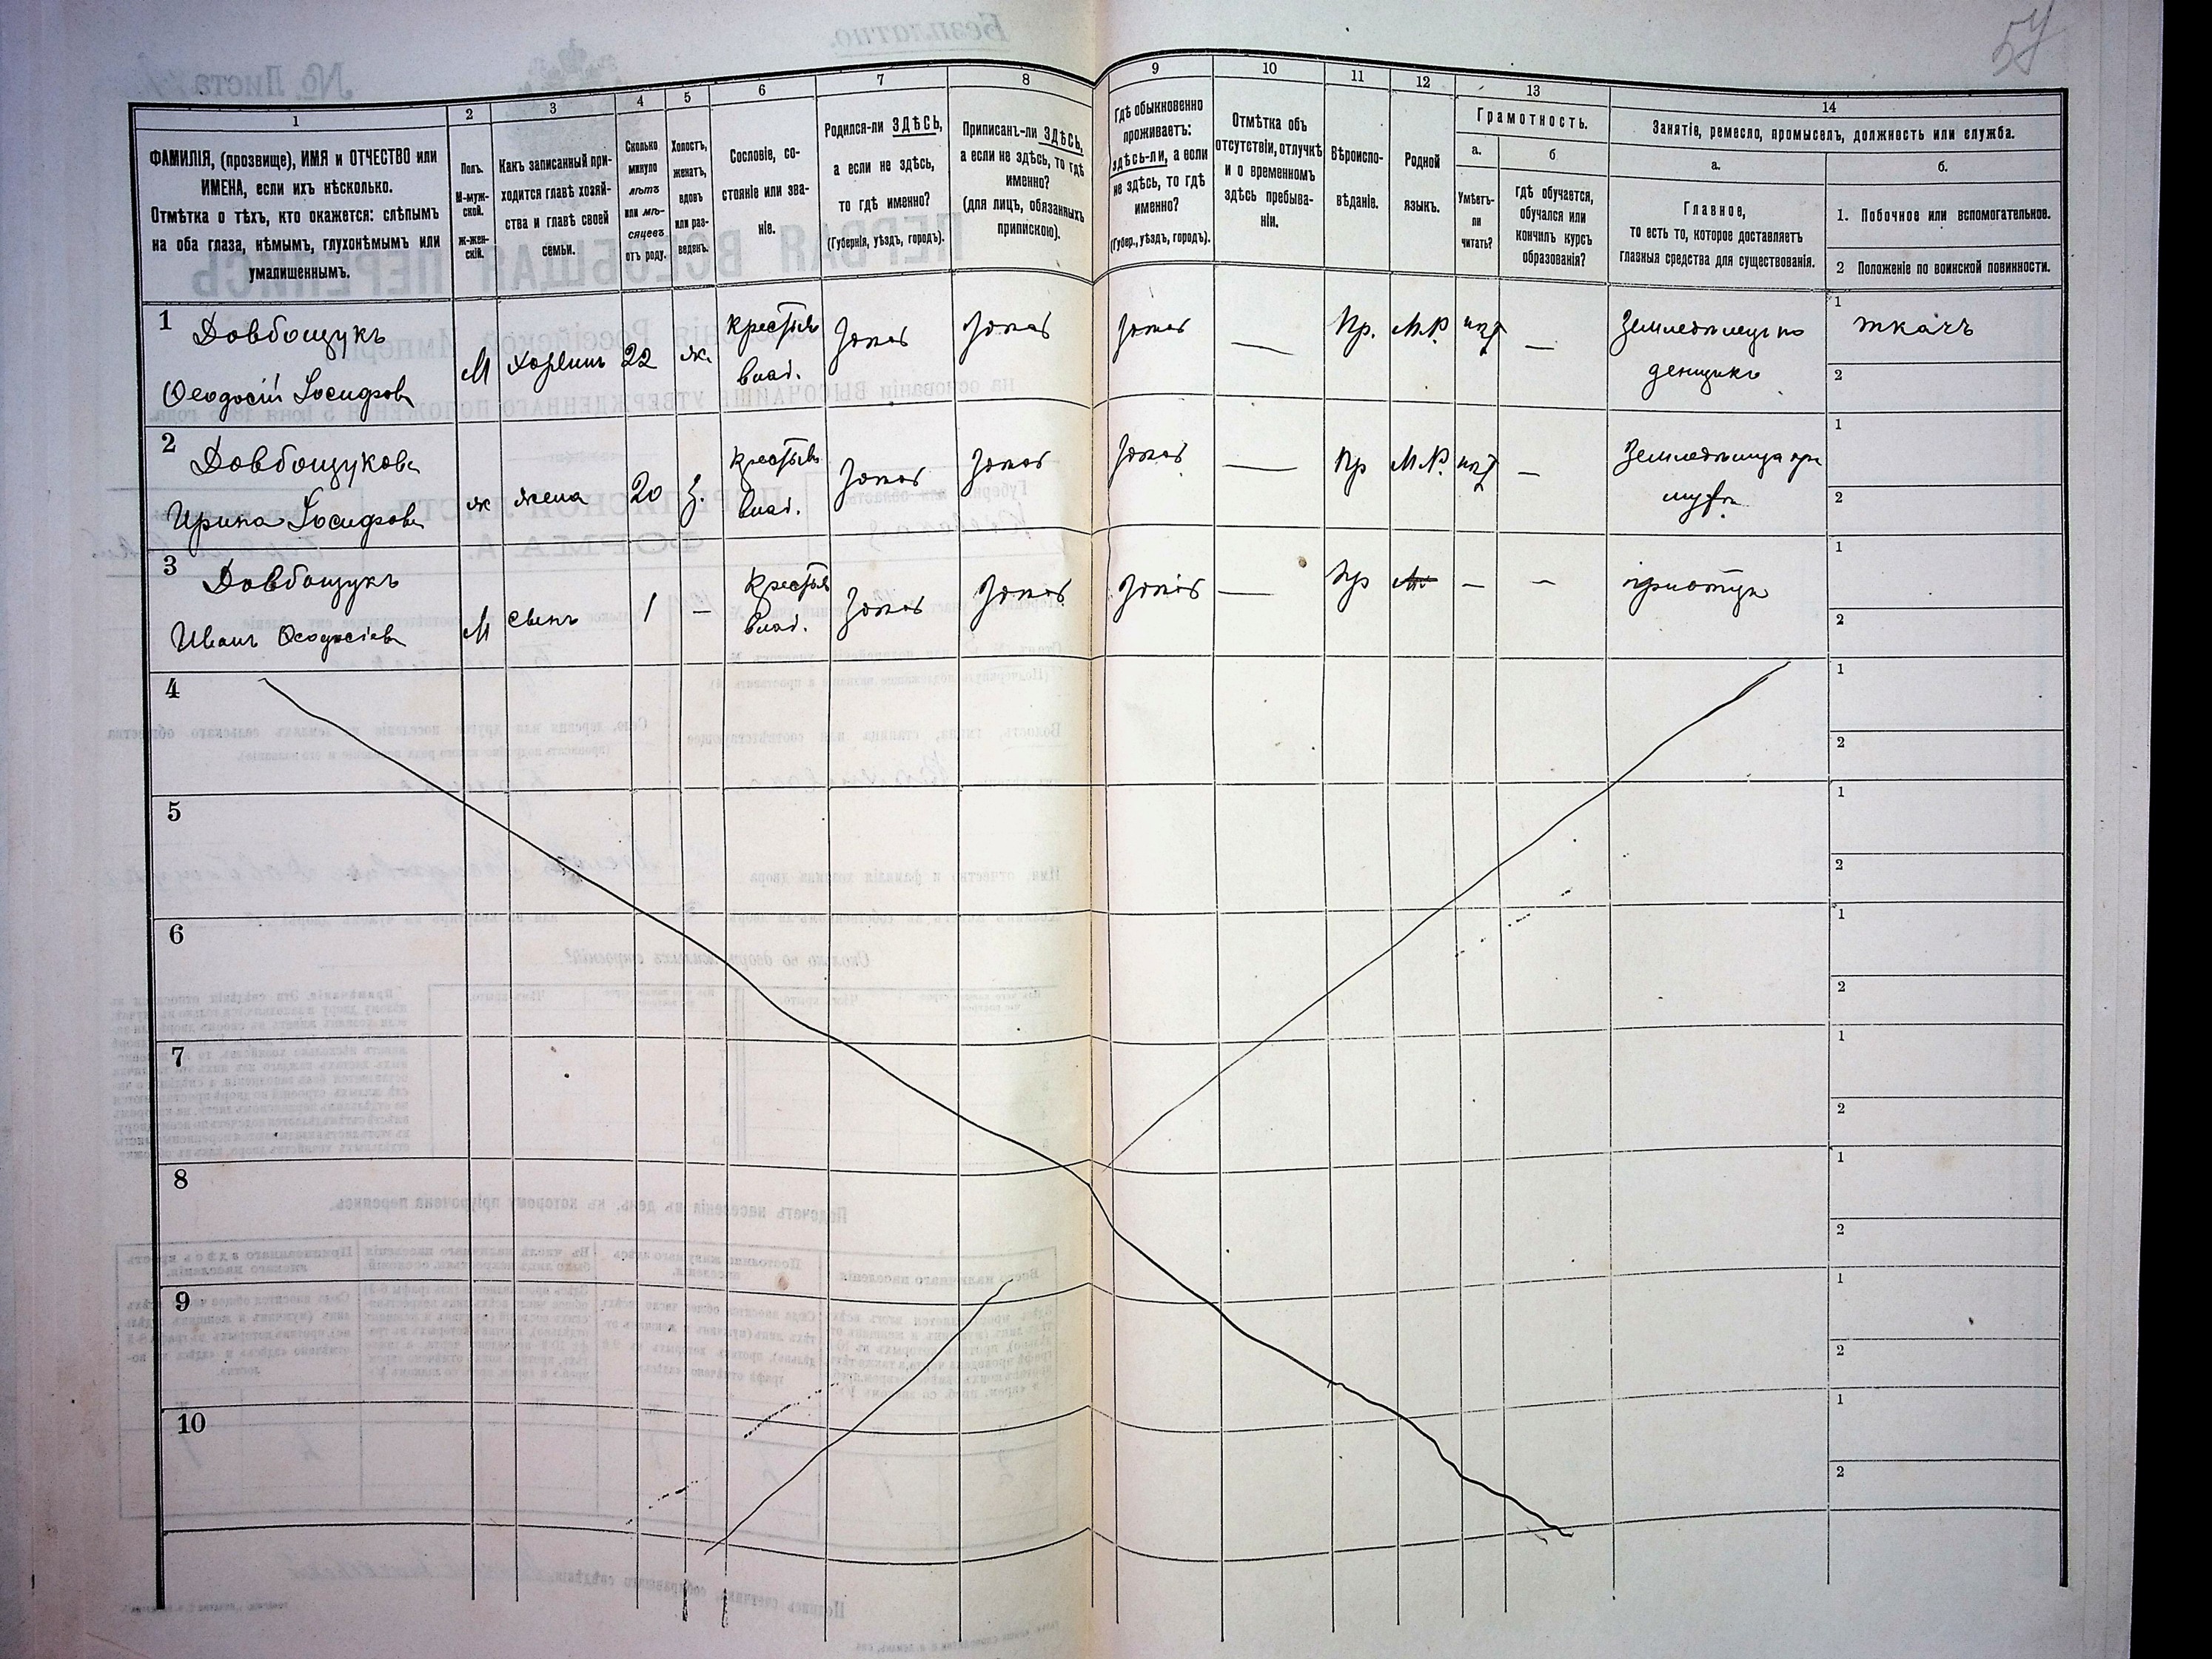 57
1
2
3
4
5
6
7
8
9
10
11
12
13
14
ФАМИЛІЯ, (прозвище), ИМЯ и ОТЧЕСТВО или
ИМЕНА, если ихъ нѣсколько.
Отмѣтка о тѣхъ, кто окажется: слѣпымъ
на оба глаза, нѣмымъ, глухонѣмымъ или
умалишеннымъ.
Полъ.
М-муж-
ской.
Ж-жен-
скій.
Какъ записанный при-
ходится главѣ хозяй-
ства и главѣ своей
семьи.
Сколько
минуло
лѣтъ
или мѣ-
сяцевъ
отъ роду.
Холостъ,
женатъ,
вдовъ
или раз-
веденъ.
Сословіе, со-
стояніе или зва-
ніе.
Родился-ли ЗДѢСЬ,
а если не здѣсь,
то гдѣ именно?
(Губернія, уѣздъ, городъ).
Приписанъ-ли ЗДѢСЬ,
а если не здѣсь, то гдѣ
именно?
(для лицъ, обязанныхъ
припискою).
Гдѣ обыкновенно
проживаетъ:
здѣсь-ли, а если
не здѣсь, то гдѣ
именно?
(Губер., уѣздъ, городъ).
Отмѣтка объ
отсутствіи, отлучкѣ
и о временномъ
здѣсь пребыва-
ніи.
Вѣроиспо-
вѣданіе.
Родной
языкъ.
Грамотность.
а.
Умѣетъ-
ли
читать?
б
гдѣ обучается,
обучался или
кончилъ курсъ
образованія?
Занятіе, ремесло, промыселъ, должность или служба.
а.
Главное,
то есть то, которое доставляетъ
главныя средства для существованія.
б.
1. Побочное или вспомогательное.
2 Положеніе по воинской повинности.
1 Довбощукъ
Ѳеодосій Іосифов
М
хозяинъ
22
ж.
крестьян
влад.
здѣсь
здѣсь
здѣсь
—
Пр.
М.Р.
нѣт
—
Земледѣлецъ по
денщикъ
1 ткачъ
2
2 Довбощукова
Ирина Іосифова
ж
жена
20
з.
крестьян
влад.
здѣсь
здѣсь
здѣсь
—
Пр
М.Р.
нѣт
—
Земледѣлица при
мужѣ
1
2
3 Довбощукъ
Иванъ Ѳеодосіев
М
сынъ
1
—
крестьян
влад.
здѣсь
здѣсь
здѣсь
—
Пр
—
—
при отцѣ
1
2
4
1
2
5
1
2
6
1
2
7
1
2
8
1
2
9
1
2
10
1
2